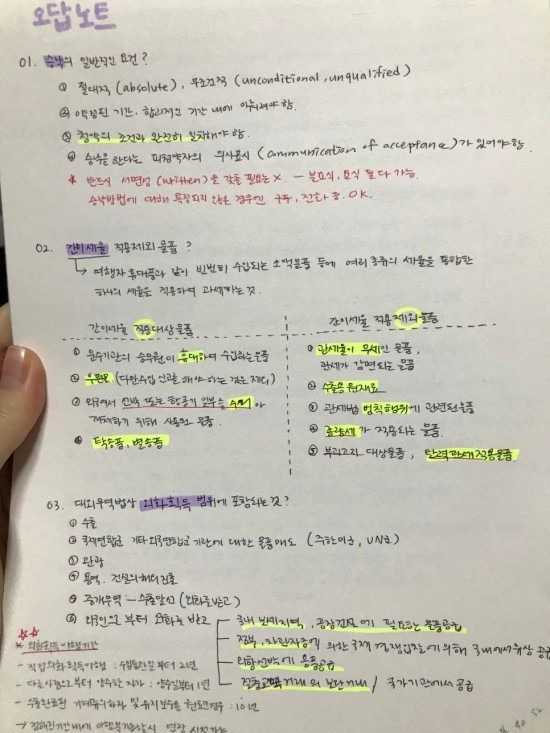 오답노트
01. 승낙의 일반적인 요건?
① 절대적 (absolute), 무조건적 (unconditional, unqualified)
② 약정된 기간, 합리적인 기간 내에 이뤄져야 함.
③ 청약의 조건과 완전히 일치해야 함.
④ 승낙을 한다는 피청약자의 의사표시 (communication of acceptance)가 있어야 함.
* 반드시 서면성 (written)을 갖출 필요는 X. - 불요식, 요식 둘 다 가능.
승낙방법에 대해 특정되지 않은 경우엔 구두, 전화 등. OK.
02. 간이세율 적용제외 물품?
↳ 여행자 휴대품과 같이 빈번히 수입되는 소액물품 등에 여러 종류의 세율을 통합한
하나의 세율을 적용하여 과세하는 것.
간이세율 적용대상물품
① 운수기관의 승무원이 휴대하여 수입하는 물품
② 우편물 (다만 수입신고를 해야 하는 것은 제외)
③ 외국에서 선박 또는 항공기 일부를 수리 or
개체하기 위해 사용된 물품.
④ 탁송품, 별송품
간이세율 적용 제외물품
① 관세율이 무세인 물품,
관세가 감면되는 물품
② 수출용 원재료
③ 관세법 범칙행위에 관련된 물품
④ 종량세가 적용되는 물품.
⑤ 부과고지 대상물품, 탄력관세적용물품
03. 대외무역법상 외화획득 범위에 포함되는 것?
① 수출
② 국제연합군 기타 외국연합군 기관에 대한 물품매도 (주한미군, UN군)
③ 관광
④ 용역. 건설의 해외진출
⑤ 중개무역 - 수출알선 (외화를 받고)
⑥ 외국인으로부터 외화를 받고
국내 보세지역, 공장건설에 필요한 물품공급
정부, 차관자금에 의한 국제 경쟁입찰에 의해 국내에서 유상 공급
외항선박에 용품공급
절충교역거래의 보완거래 / 국가기관에서 공급
* 외화획득 이행기간
- 직접 외화획득이행 : 수입통관일부터 2년
- 다른 사람으로부터 양수한 자가 : 양수일부터 1년
- 수출완료된 기계류의 하자 및 유지보수용 원료인 경우 : 10년